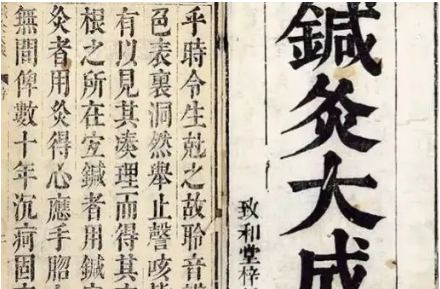 鍼灸大成
致和堂梓
乎時令生尅之故聆音
色表裏洞然舉止聲咳
有以見其湊理而得其
根之所在宜鍼者用鍼
灸者用灸得心應手
無間俾數十年沉疴固